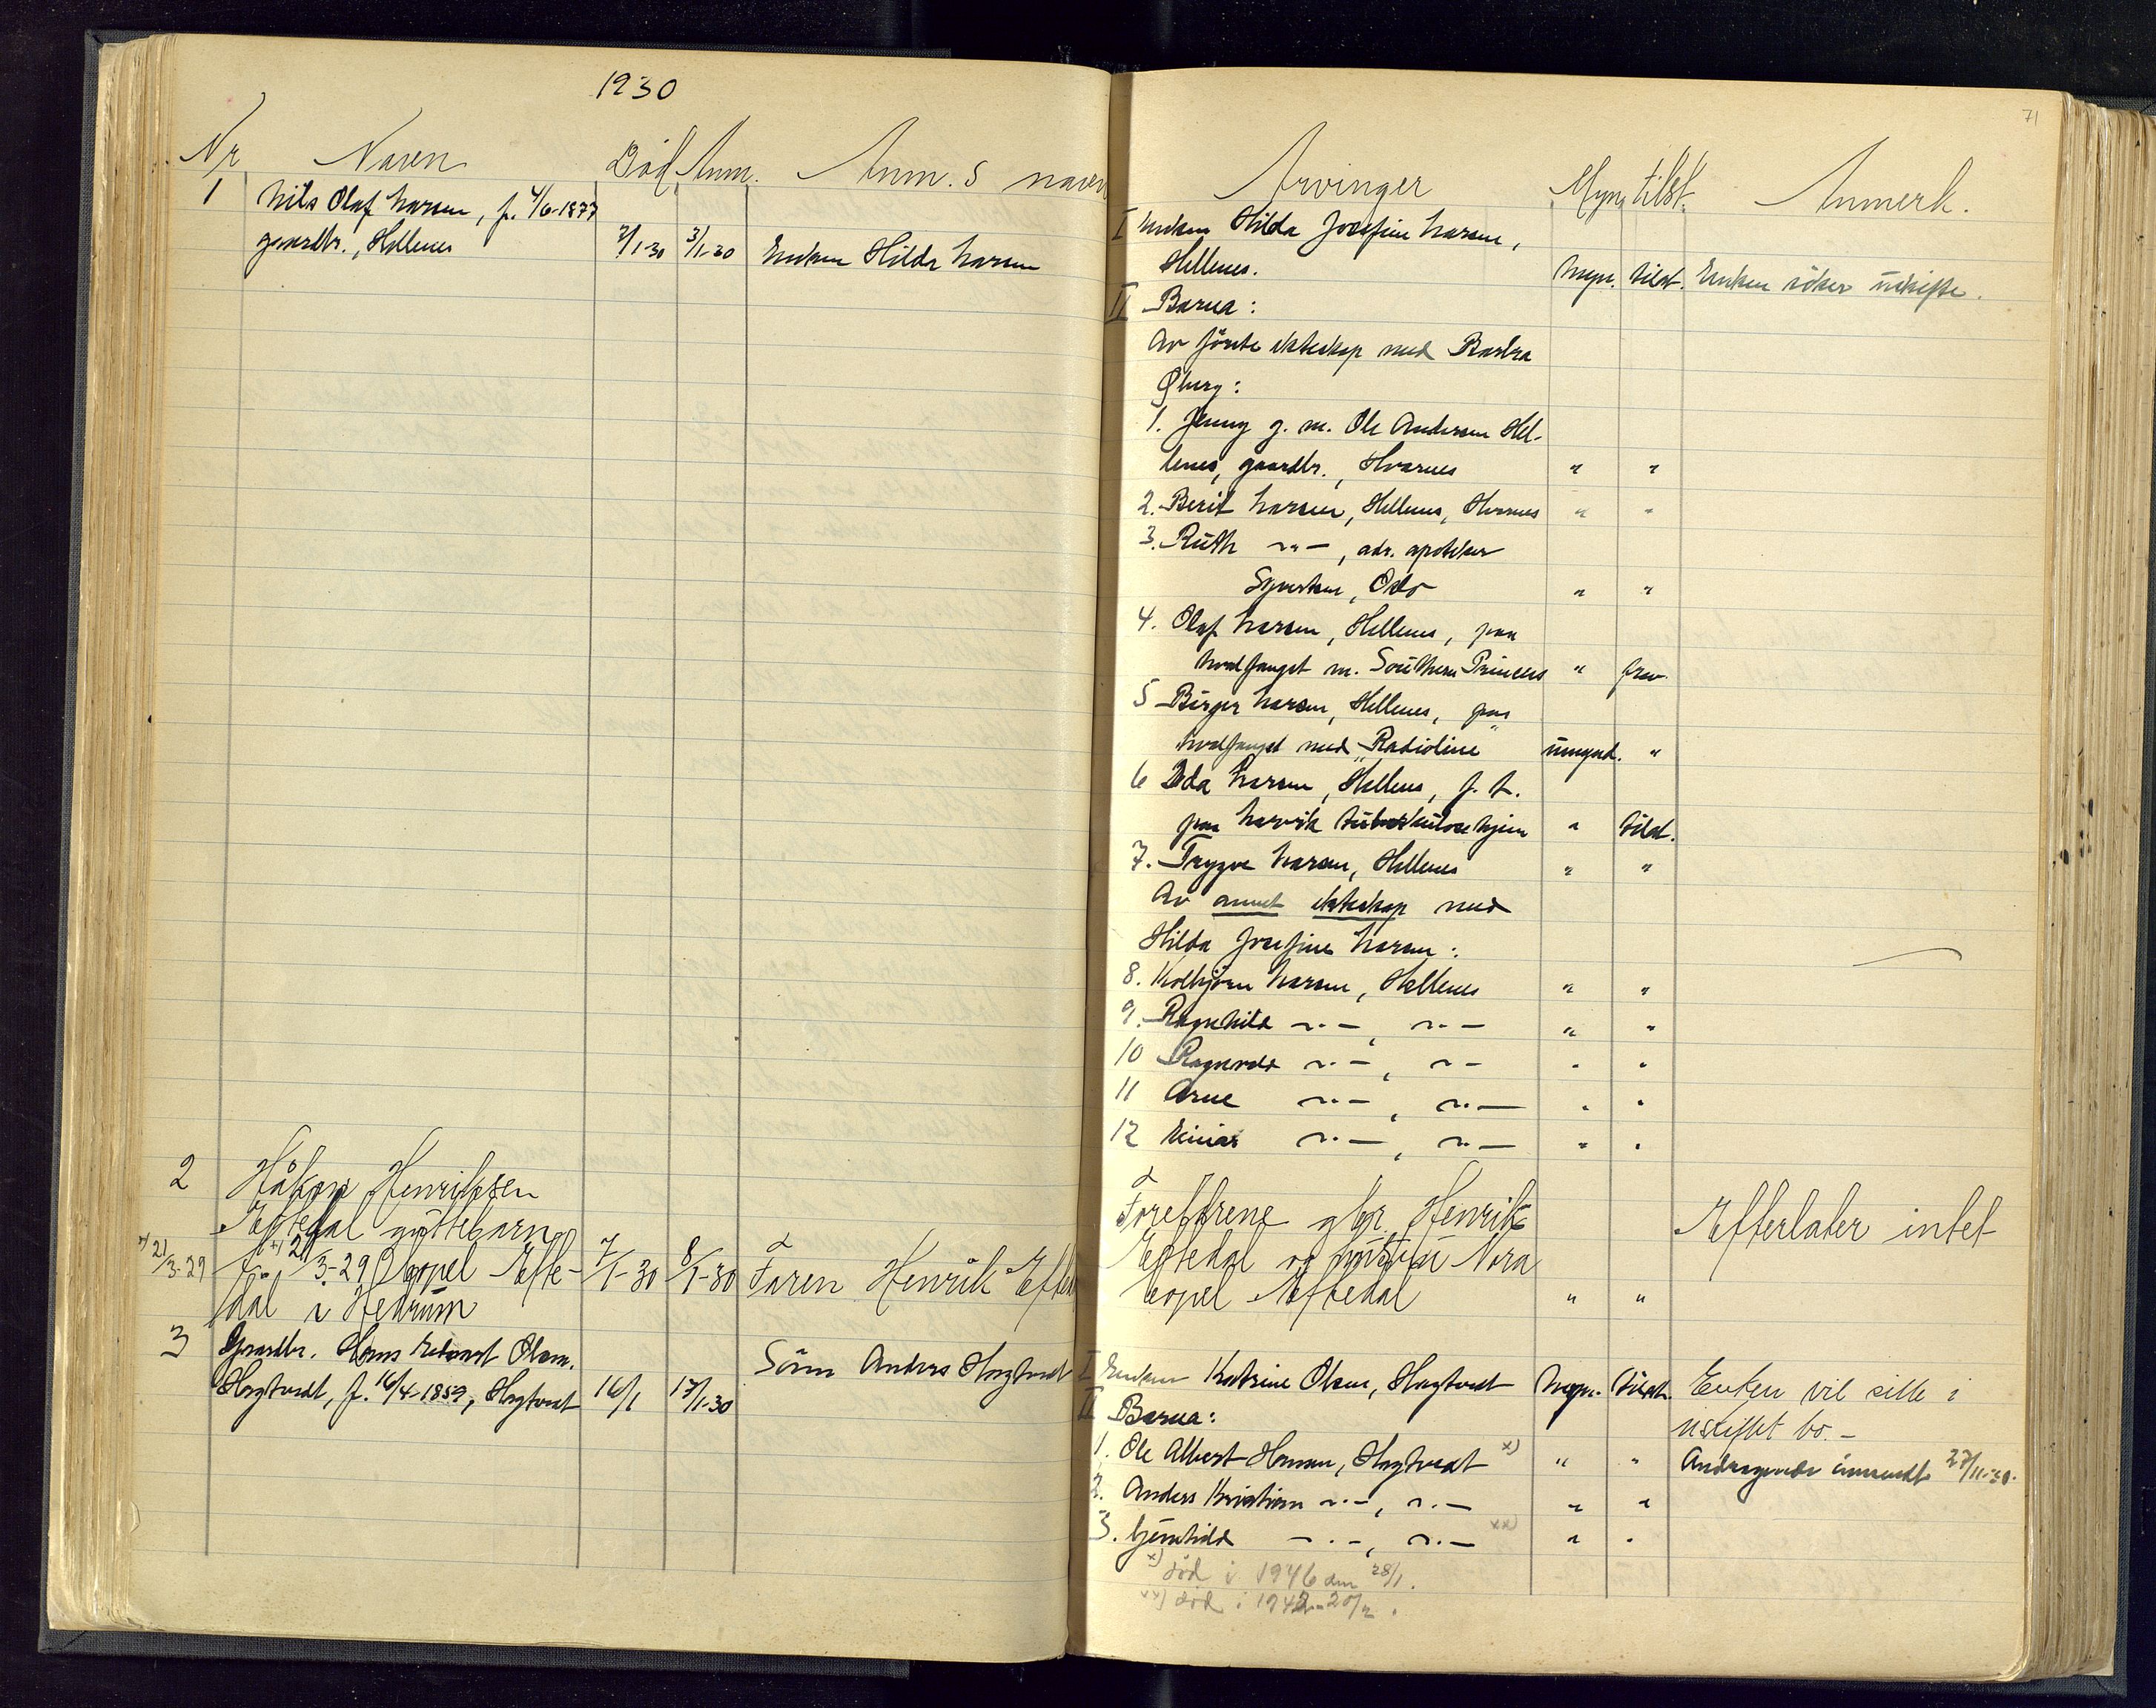 1930
Nr Navn Död Anm. Anm.s navn
1 Nils Olaf Larsen, f. 4/6-1877
gaardbr., Hellenes 2/1-30 3/1-30 Enken Hilda Larsen
2 Håkon Henriksen
Eftedal guttebarn
x) 21/3-29 f. x) 21/3-29 Gopel Efte- 7/1-30 8/1-30 Faren Henrik Efted
dal i Hedrum
3 Gaardbr. Hans Edvart Olsen
Hagtvedt, f. 16/4-1859, Hagtvedt 16/1 17/1-30 Sönn Anders Hagtvedt
71
Arvinger Myn. tilst. Anmerk.
I Enken Hilda Josefine Larsen,
Hellenes. Myn. tilst. Enken söker uskifte.
II Barna:
Av förste ekteskap med Barbra
Öberg:
1. Jenny g. m. Ole Andersen Hel-
lenes, gaardbr., Hvarnes " "
2. Berit Larsen, Hellenes, Hvarnes " "
3. Ruth -"-, adr. apoteker
Syvertsen, Oslo " "
4. Olaf Larsen, Hellenes, paa
hvalfangst m. Southern Princess " frav.
5 Birger Larsen, Hellenes, paa
hvalfangst med "Radioline" umynd. "
6 Ida Larsen, Hellenes, f. t.
paa Larvik tuberkulosehjem " tilst.
7. Trygve Larsen, Hellenes " "
Av annet ekteskap med
Hilda Josefine Larsen:
8. Kolbjörn Larsen, Hellenes " "
9. Ragnhild -"-, -"- " "
10 Ragnvald -"-, -"- " "
11 Arne -"-, -"- " "
12 Einar -"-, -"- " "
Foreldrene gbr. Henrik Efterlater intet
Eftedal og hustru Nora
Gopel Eftedal " "
I Enken Katrine Olsen, Hagtvedt Myn. tilst. Enken vil sitte i
II Barna: uskiftet bo.-
1. Ole Albert Hansen, Hagtvedt x) " " Andragende innsendt 27/11-30.
2. Anders Kristian -"-, -"- " "
3. Gunhild -"-, -"- xx) " "
x) död i 1946 den 28/1.
xx) död i 1942 - 20/2.